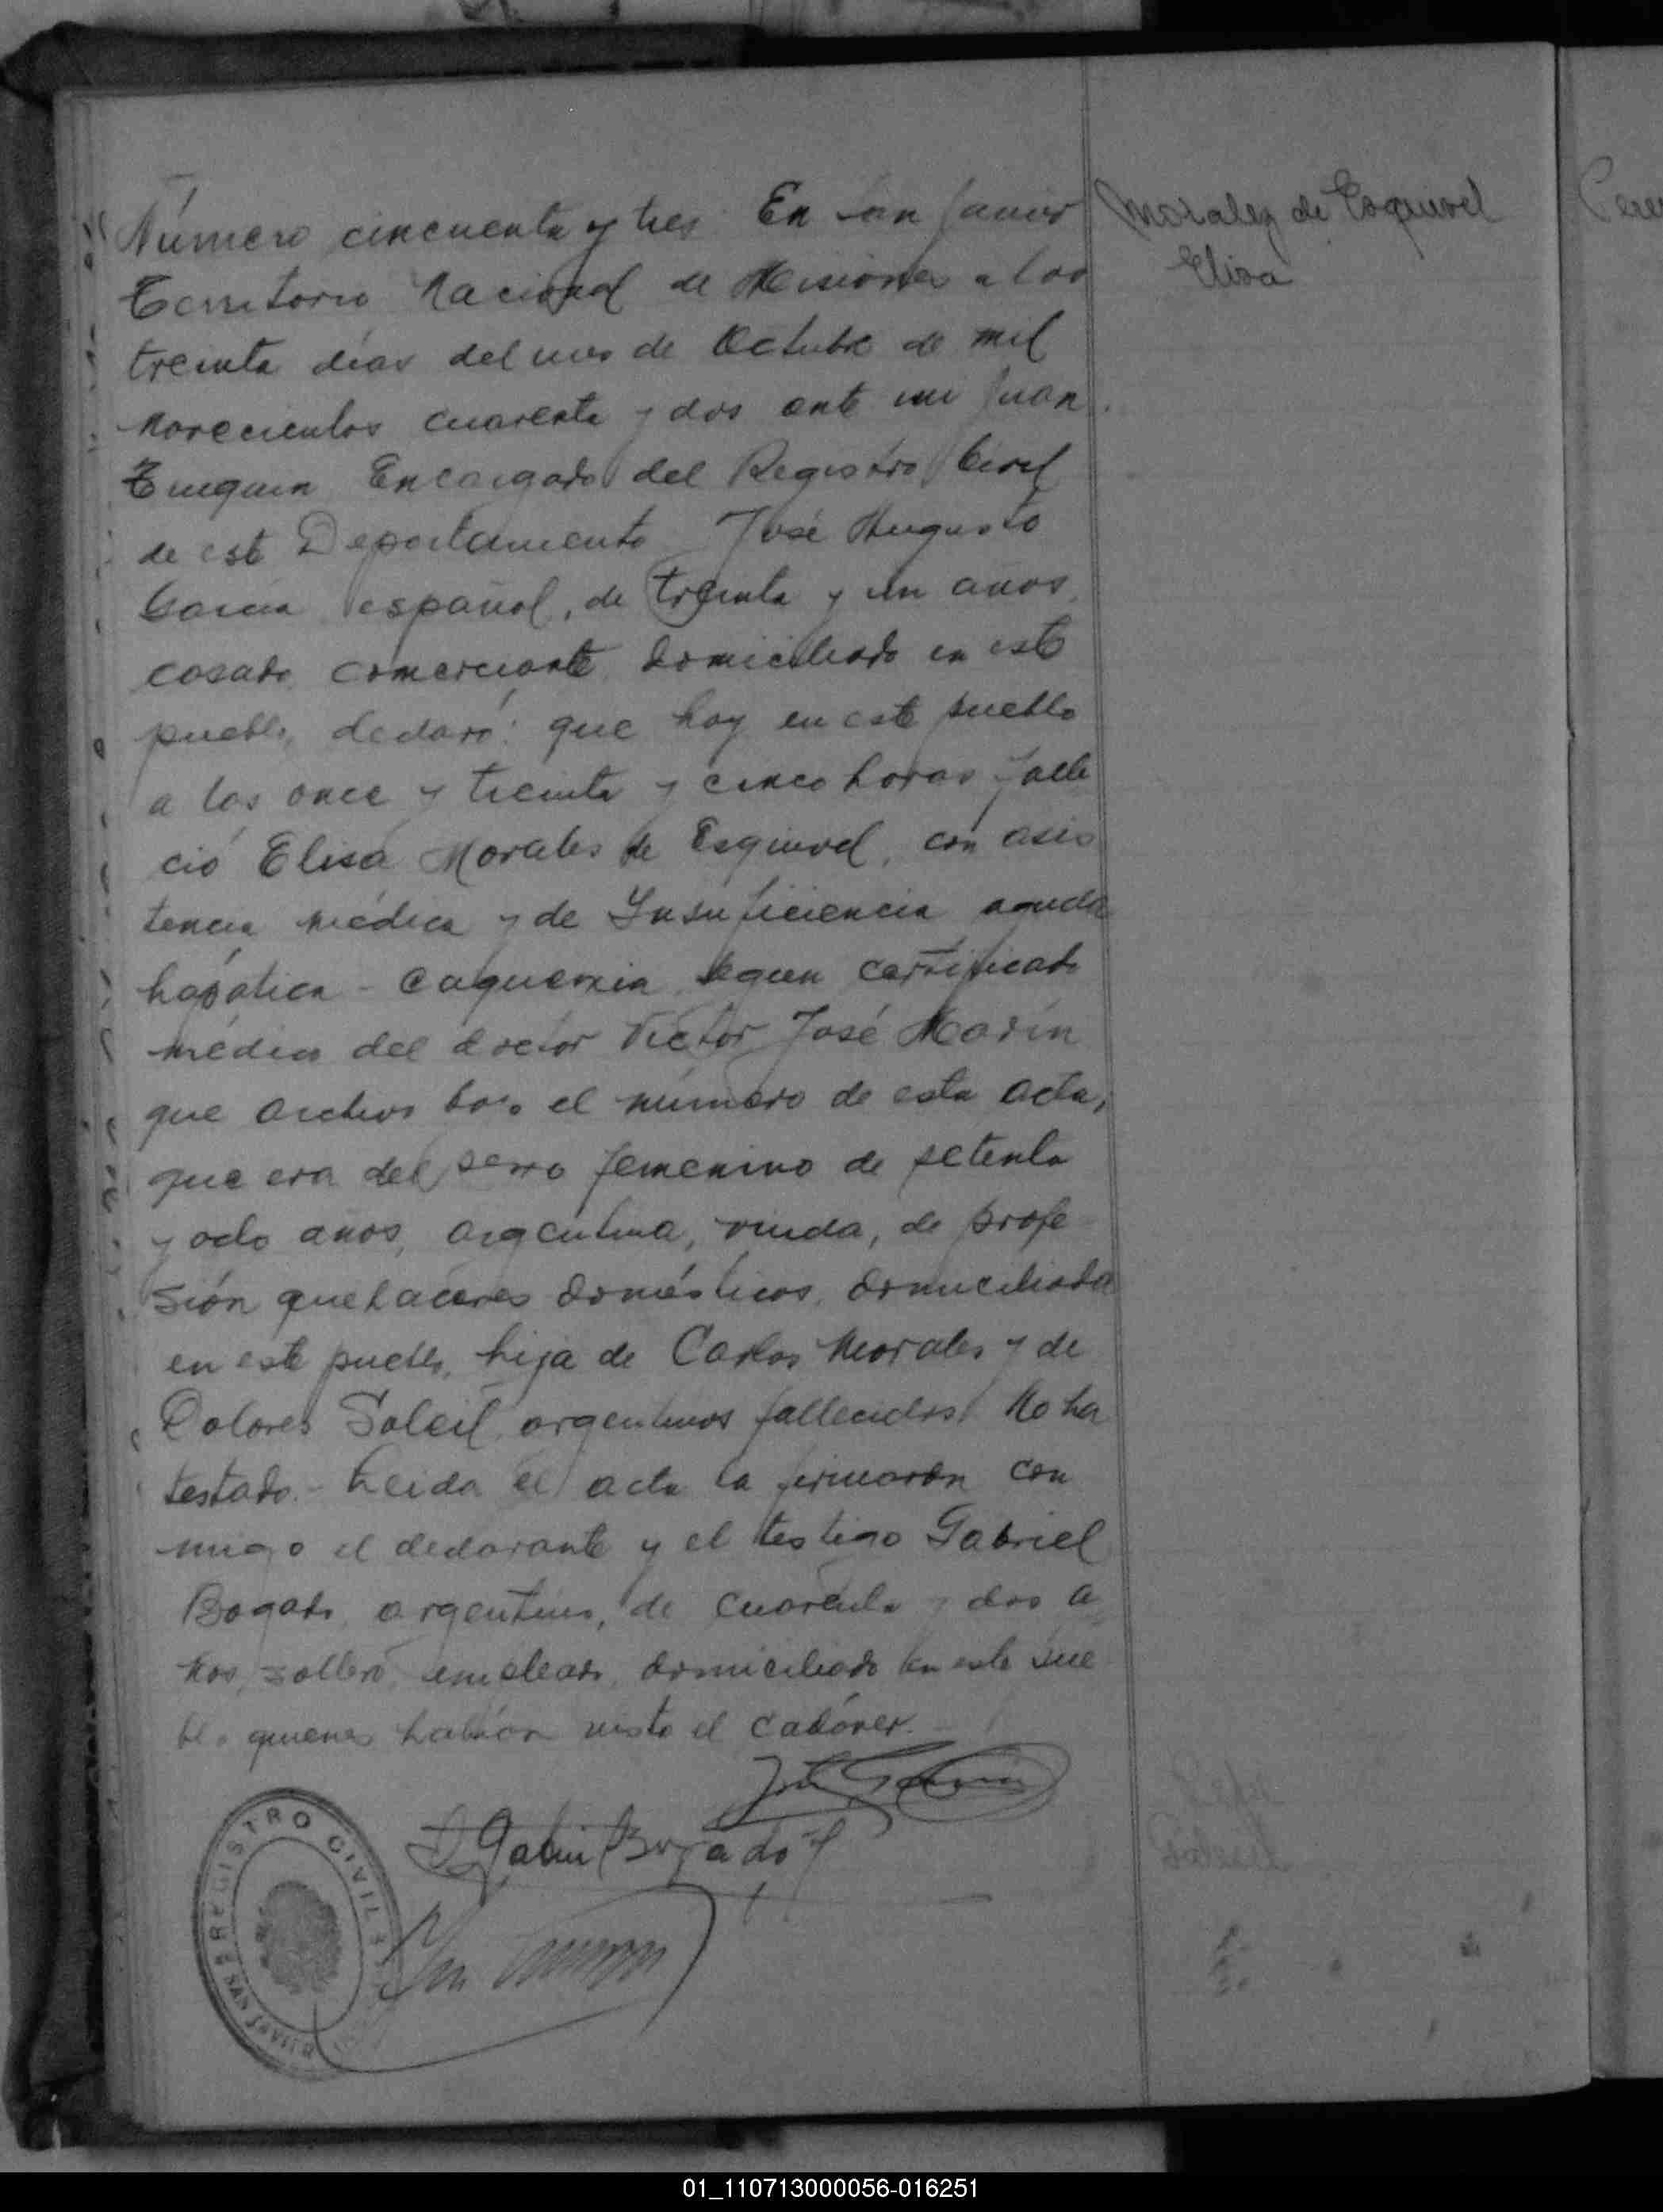 Número cincuenta y tres. En San Javier
Territorio Nacional de Misiones a los
treinta días del mes de Octubre de mil
novecientos cuarenta y dos ante mi Juan
Encargado del Registro Civil
de este Departamento José Augusto
García español, de treinta y un años,
casado, comerciante, domiciliado en este
pueblo, declaró: que hoy en este pueblo
a las once y treinta y cinco horas falle
ció Elisa Morales de Esquivel, con asis
tencia médica y de Insuficiencia aguda
hepática - caquexia, segun certificado
médico del doctor Victor José Marín
que archivo bajo el número de esta acta,
que era del sexo femenino de setenta
y ocho años, argentina, viuda, de profe
sión quehaceres domésticos, domiciliada
en este pueblo, hija de Carlos Morales y de
Dolores Soleil, argentinos fallecidos. No ha
testado. - Leida el acta la firmaron con
migo el declarante y el testigo Gabriel
Bogado, argentino, de cuarenta y dos a
ños, soltero, empleado, domiciliado en este pue
blo quienes habían visto el cadáver. -
Gabriel Bogado
REGISTRO CIVIL
SAN JAVIER
Morales de Esquivel
Elisa
01_110713000056-016251